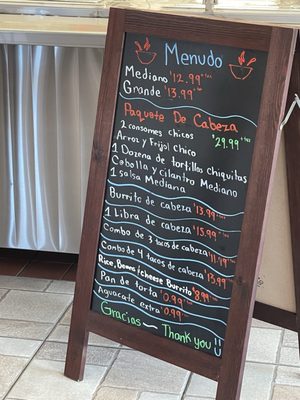 Menudo
Mediano $12.99 +Tax
Grande $13.99 +Tax
Paquete De Cabeza
2 consomes chicos $29.99 +Tax
Arroz y Frijol Chico
1 Dozena de tortillas chiquitas
Cebolla y cilantro Mediano
1 salsa Mediana
Burrito de cabeza $13.99 +Tax
1 Libra de cabeza $15.99 +Tax
Combo de 3 tacos de cabeza $11.79 +Tax
Combo de 4 tacos de cabeza $13.99 +Tax
Rice, Beans & cheese Burrito $8.99 +Tax
Pan de torta $0.99 +Tax
Aguacate extra $0.99 +Tax
Gracias ~ Thank you!!